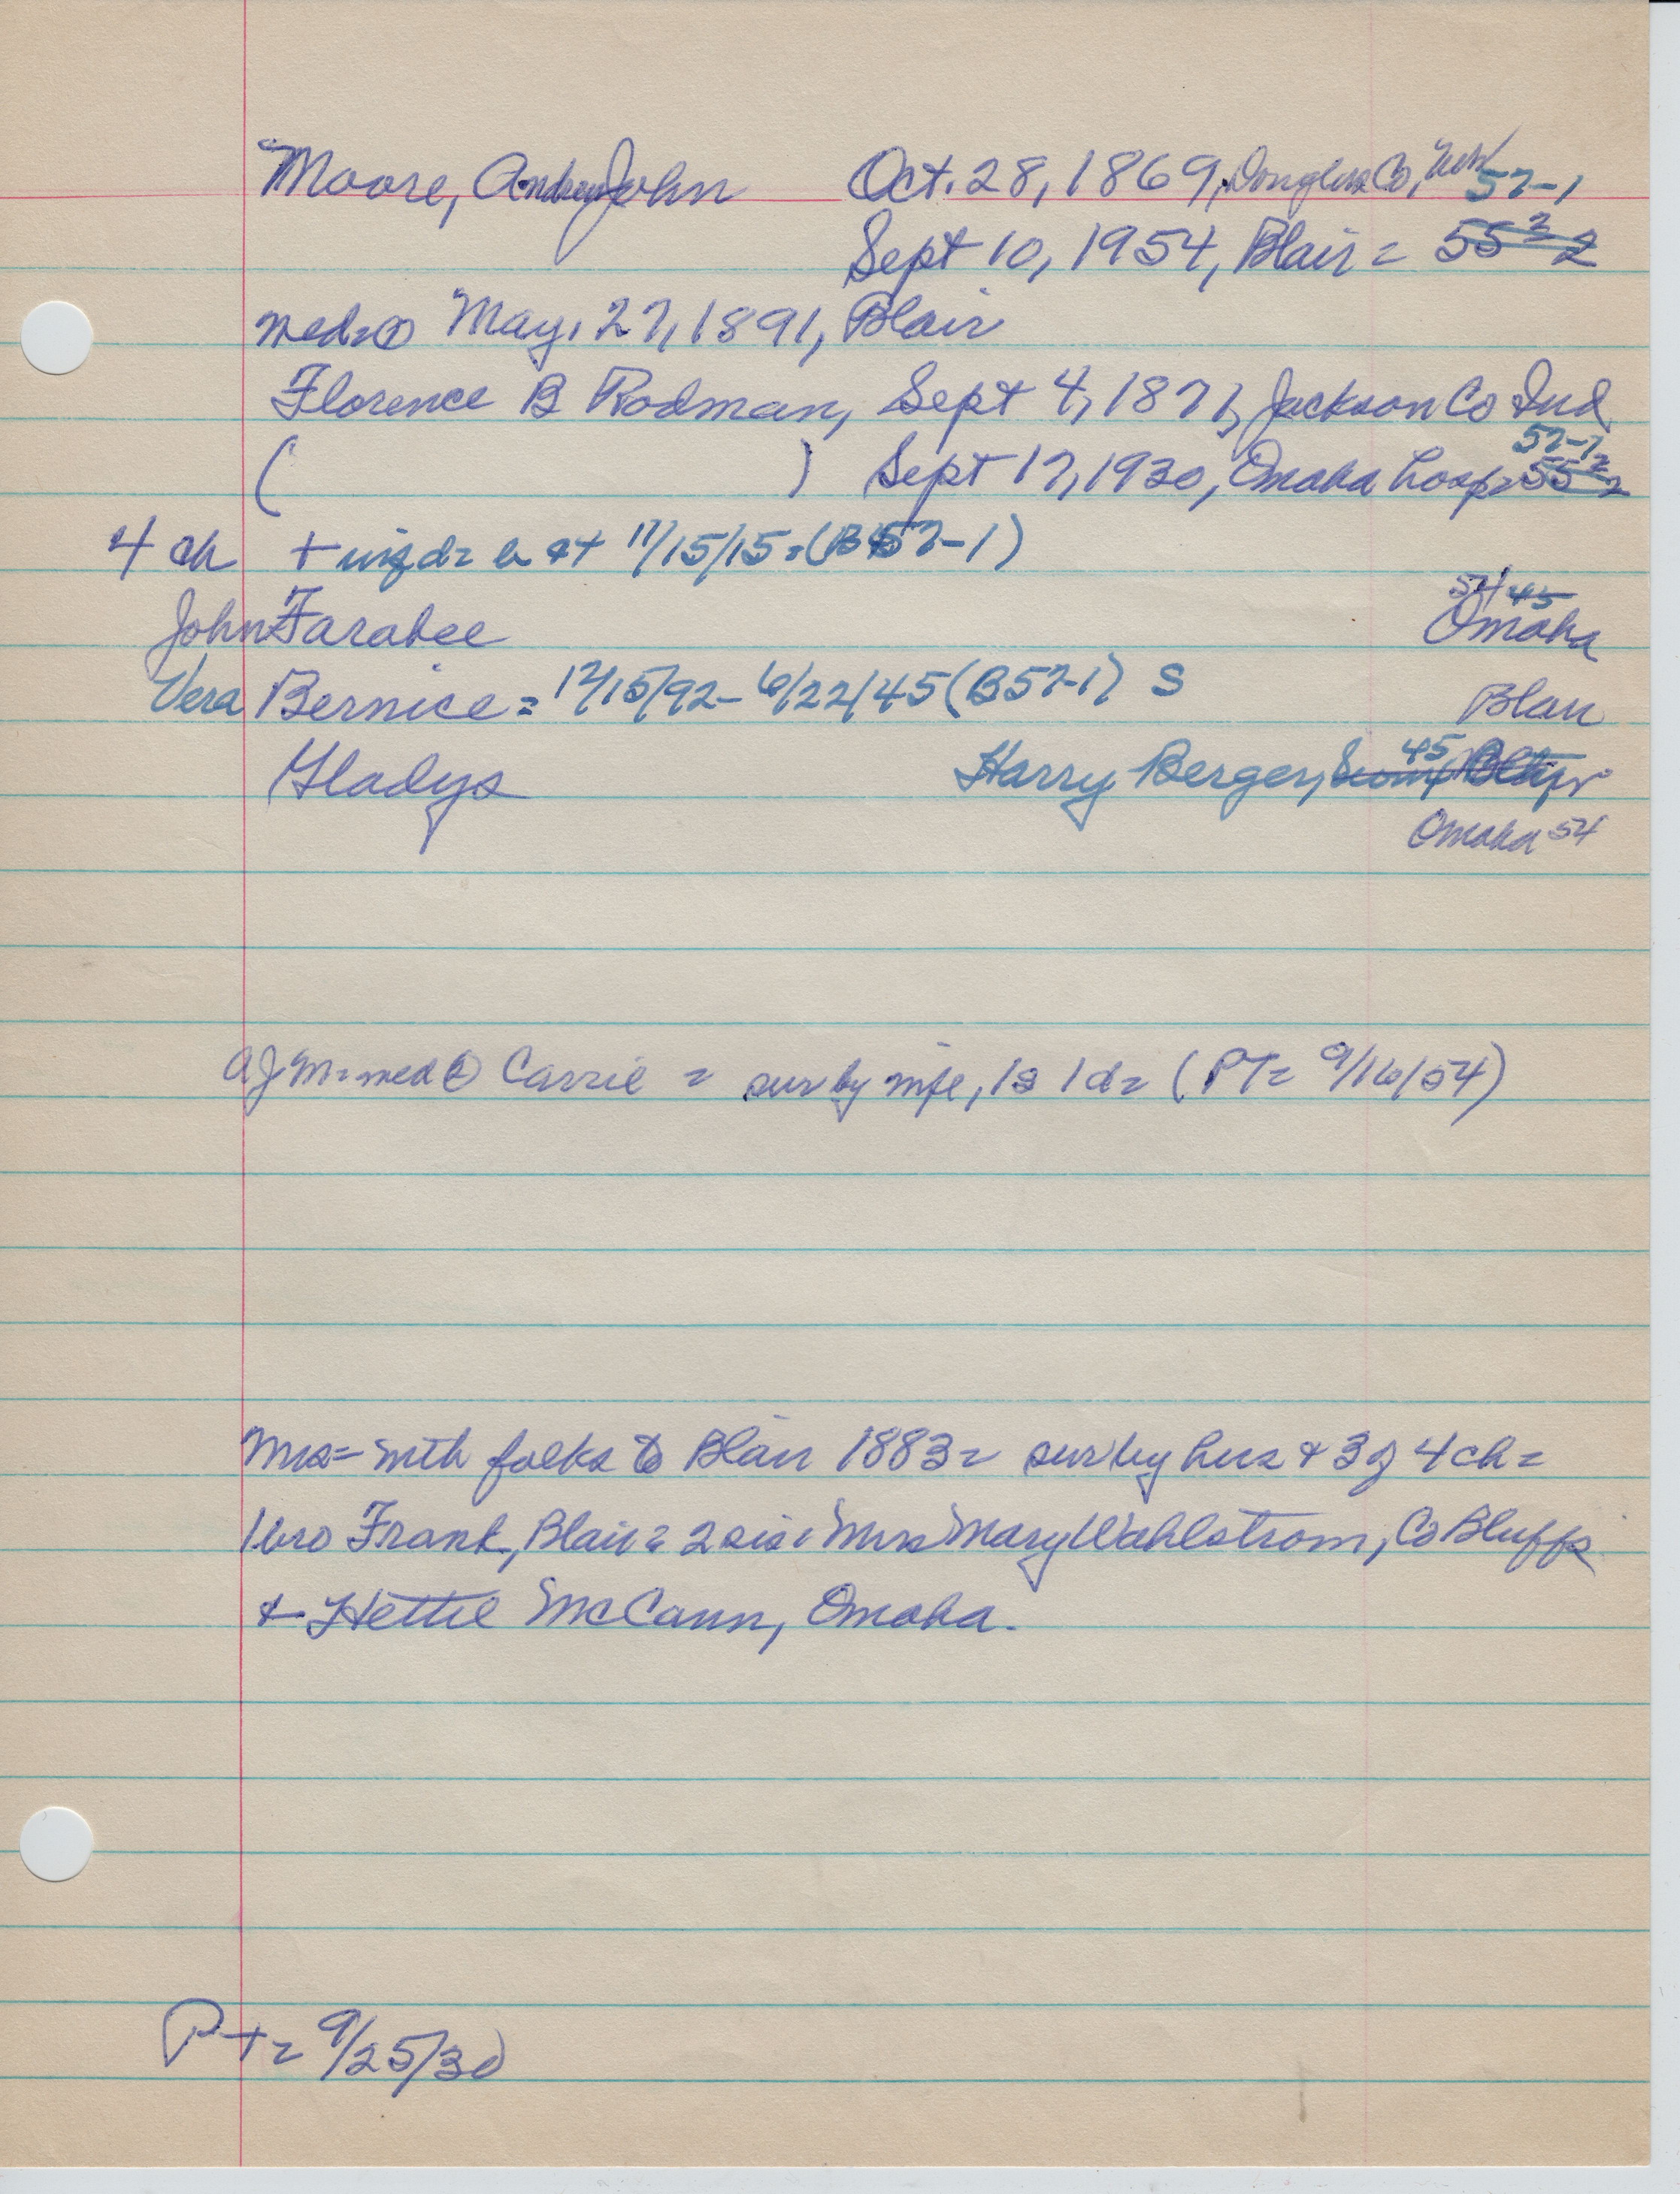 Moore, Andrew John Oct. 28, 1869, Douglas Co, Neb 57-1
Sept 10, 1954, Blair = 55 2 2
med=① May. 27, 1891, Blair
Florence B Rodman, Sept 4, 1871, Jackson Co Ind
57-1
( ) Sept 17, 1930, Omaha hosp= 55 2 2
4 ch + inf d= b at 11/15/15=(B57-1)
54 45
John Farabee Omaha
Vera Bernice = 12/15/92- 6/22/45 (B57-1) S Blair
Gladys Harry Berger, 45
Omaha 54
AJM=med② Carrie = sur by wife, 1s 1d= (PT= 9/16/54)
Mrs= with folks to Blair 1883= sur by hus + 3 of 4 ch=
1 bro Frank, Blair= 2 sis= Mrs Mary Wahlstrom, Co Bluffs
+ Hettie McCann, Omaha.
PT= 9/25/30